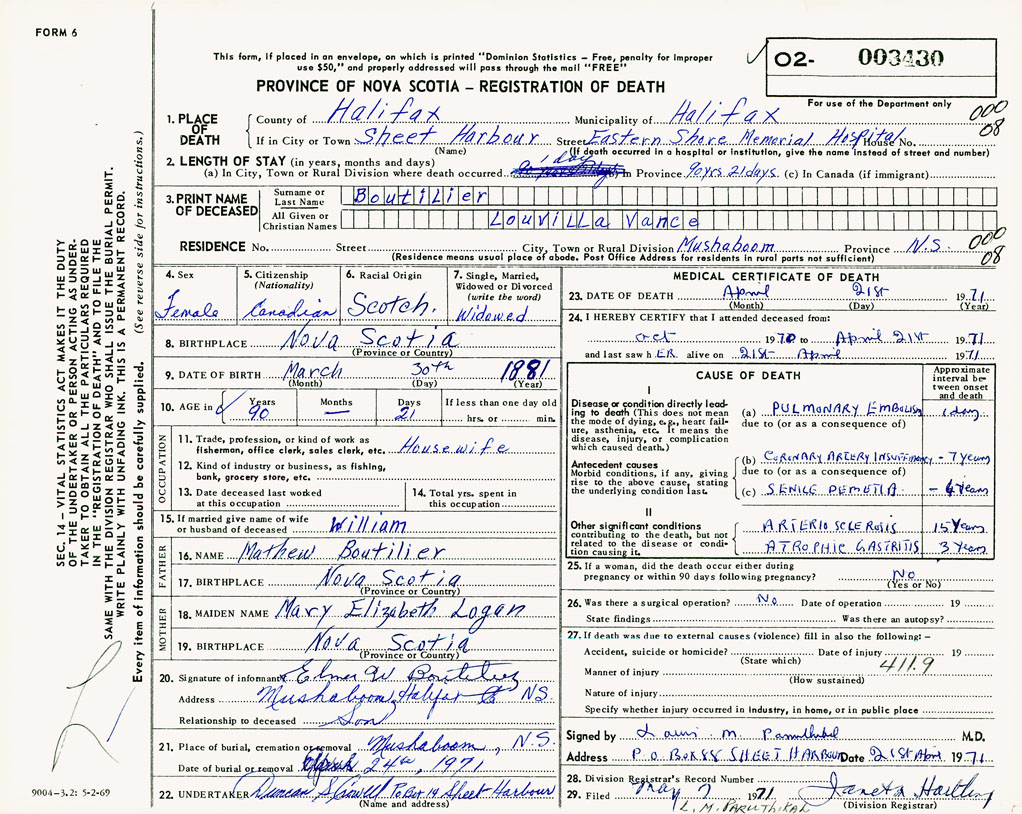 FORM 6
This form, if placed in an envelope, on which is printed "Dominion Statistics – Free, penalty for improper
use $50," and properly addressed will pass through the mail "FREE"
02- 003430
For use of the Department only
PROVINCE OF NOVA SCOTIA – REGISTRATION OF DEATH
1. PLACE OF DEATH
County of Halifax Municipality of Halifax 000
If in City or Town Sheet Harbour Street Eastern Shore Memorial Hospital House No. 08
(Name) (If death occurred in a hospital or institution, give the name instead of street and number)
2. LENGTH OF STAY (in years, months and days)
(a) In City, Town or Rural Division where death occurred 1 day (b) in Province 90 yrs. 21 days. (c) In Canada (if immigrant)
3. PRINT NAME OF DECEASED
Surname or Last Name Boutilier
All Given or Christian Names Louvilla Vance
RESIDENCE No. Street City, Town or Rural Division Mushaboom Province N.S. 000
(Residence means usual place of abode. Post Office Address for residents in rural parts not sufficient) 08
4. Sex Female
5. Citizenship (Nationality) Canadian
6. Racial Origin Scotch.
7. Single, Married, Widowed or Divorced (write the word) Widowed
8. BIRTHPLACE Nova Scotia
(Province or Country)
9. DATE OF BIRTH March 30th 1881
(Month) (Day) (Year)
10. AGE in Years 90 Months — Days 21 If less than one day old hrs. or min.
OCCUPATION
11. Trade, profession, or kind of work as
fisherman, office clerk, sales clerk, etc. Housewife
12. Kind of industry or business, as fishing,
bank, grocery store, etc.
13. Date deceased last worked
at this occupation
14. Total yrs. spent in
this occupation
15. If married give name of wife
or husband of deceased William
FATHER
16. NAME Mathew Boutilier
17. BIRTHPLACE Nova Scotia
(Province or Country)
MOTHER
18. MAIDEN NAME Mary Elizabeth Logan
19. BIRTHPLACE Nova Scotia
(Province or Country)
20. Signature of informant Elmer W Boutilier
Address Mushaboom, Halifax Co NS
Relationship to deceased Son
21. Place of burial, cremation or removal Mushaboom, N.S.
Date of burial or removal 24th, 1971
22. UNDERTAKER Duncan P.O. Box 14 Sheet Harbour
(Name and address)
MEDICAL CERTIFICATE OF DEATH
23. DATE OF DEATH April 21st 1971
(Month) (Day) (Year)
24. I HEREBY CERTIFY that I attended deceased from:
Oct 1970 to April 21st 1971
and last saw hER alive on 21st April 1971
CAUSE OF DEATH
Approximate interval between onset and death
I
Disease or condition directly leading to death (This does not mean the mode of dying, e.g., heart failure, asthenia, etc. It means the disease, injury, or complication which caused death.)
(a) PULMONARY EMBOLISM 1 day
due to (or as a consequence of)
Antecedent causes
Morbid conditions, if any, giving rise to the above cause, stating the underlying condition last.
(b) CORONARY ARTERY INSUFFICIENCY - 7 years
due to (or as a consequence of)
(c) SENILE DEMETIA - 4 years
II
Other significant conditions contributing to the death, but not related to the disease or condition causing it.
ARTERIO SCLEROSIS 15 Years
ATROPHIC GASTRITIS 3 Years
25. If a woman, did the death occur either during
pregnancy or within 90 days following pregnancy? No
(Yes or No)
26. Was there a surgical operation? No Date of operation 19
State findings Was there an autopsy?
27. If death was due to external causes (violence) fill in also the following: –
Accident, suicide or homicide? Date of injury 19
(State which) 411.9
Manner of injury
(How sustained)
Nature of injury
Specify whether injury occurred in industry, in home, or in public place
Signed by M. Paruthikal M.D.
Address P.O BOX 88 SHEET HARBOUR Date 21st April 1971
28. Division Registrar's Record Number
29. Filed May 7 1971 Janet Hartling
L.M. PARUTHIKAL (Division Registrar)
SEC. 14 – VITAL STATISTICS ACT MAKES IT THE DUTY
OF THE UNDERTAKER OR PERSON ACTING AS UNDER-
TAKER TO OBTAIN ALL THE PARTICULARS REQUIRED
IN THE "REGISTRATION OF DEATH" AND TO FILE THE
SAME WITH THE DIVISION REGISTRAR WHO SHALL ISSUE THE BURIAL PERMIT.
WRITE PLAINLY WITH UNFADING INK. THIS IS A PERMANENT RECORD.
Every item of information should be carefully supplied. (See reverse side for instructions.)
9004-3.2: 5-2-69